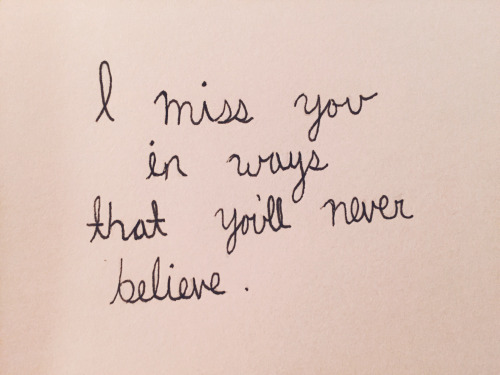 I miss you
in ways
that you'll never
believe.